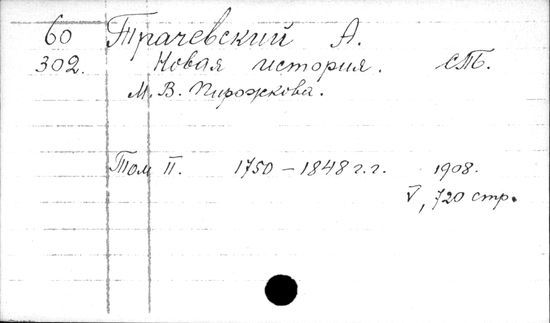 60 Трачевский А.
302. Новая история. СПб.
М. В. Пирожкова.
Том II. 1750 – 1848 г.г. 1908.
V, 720 стр.